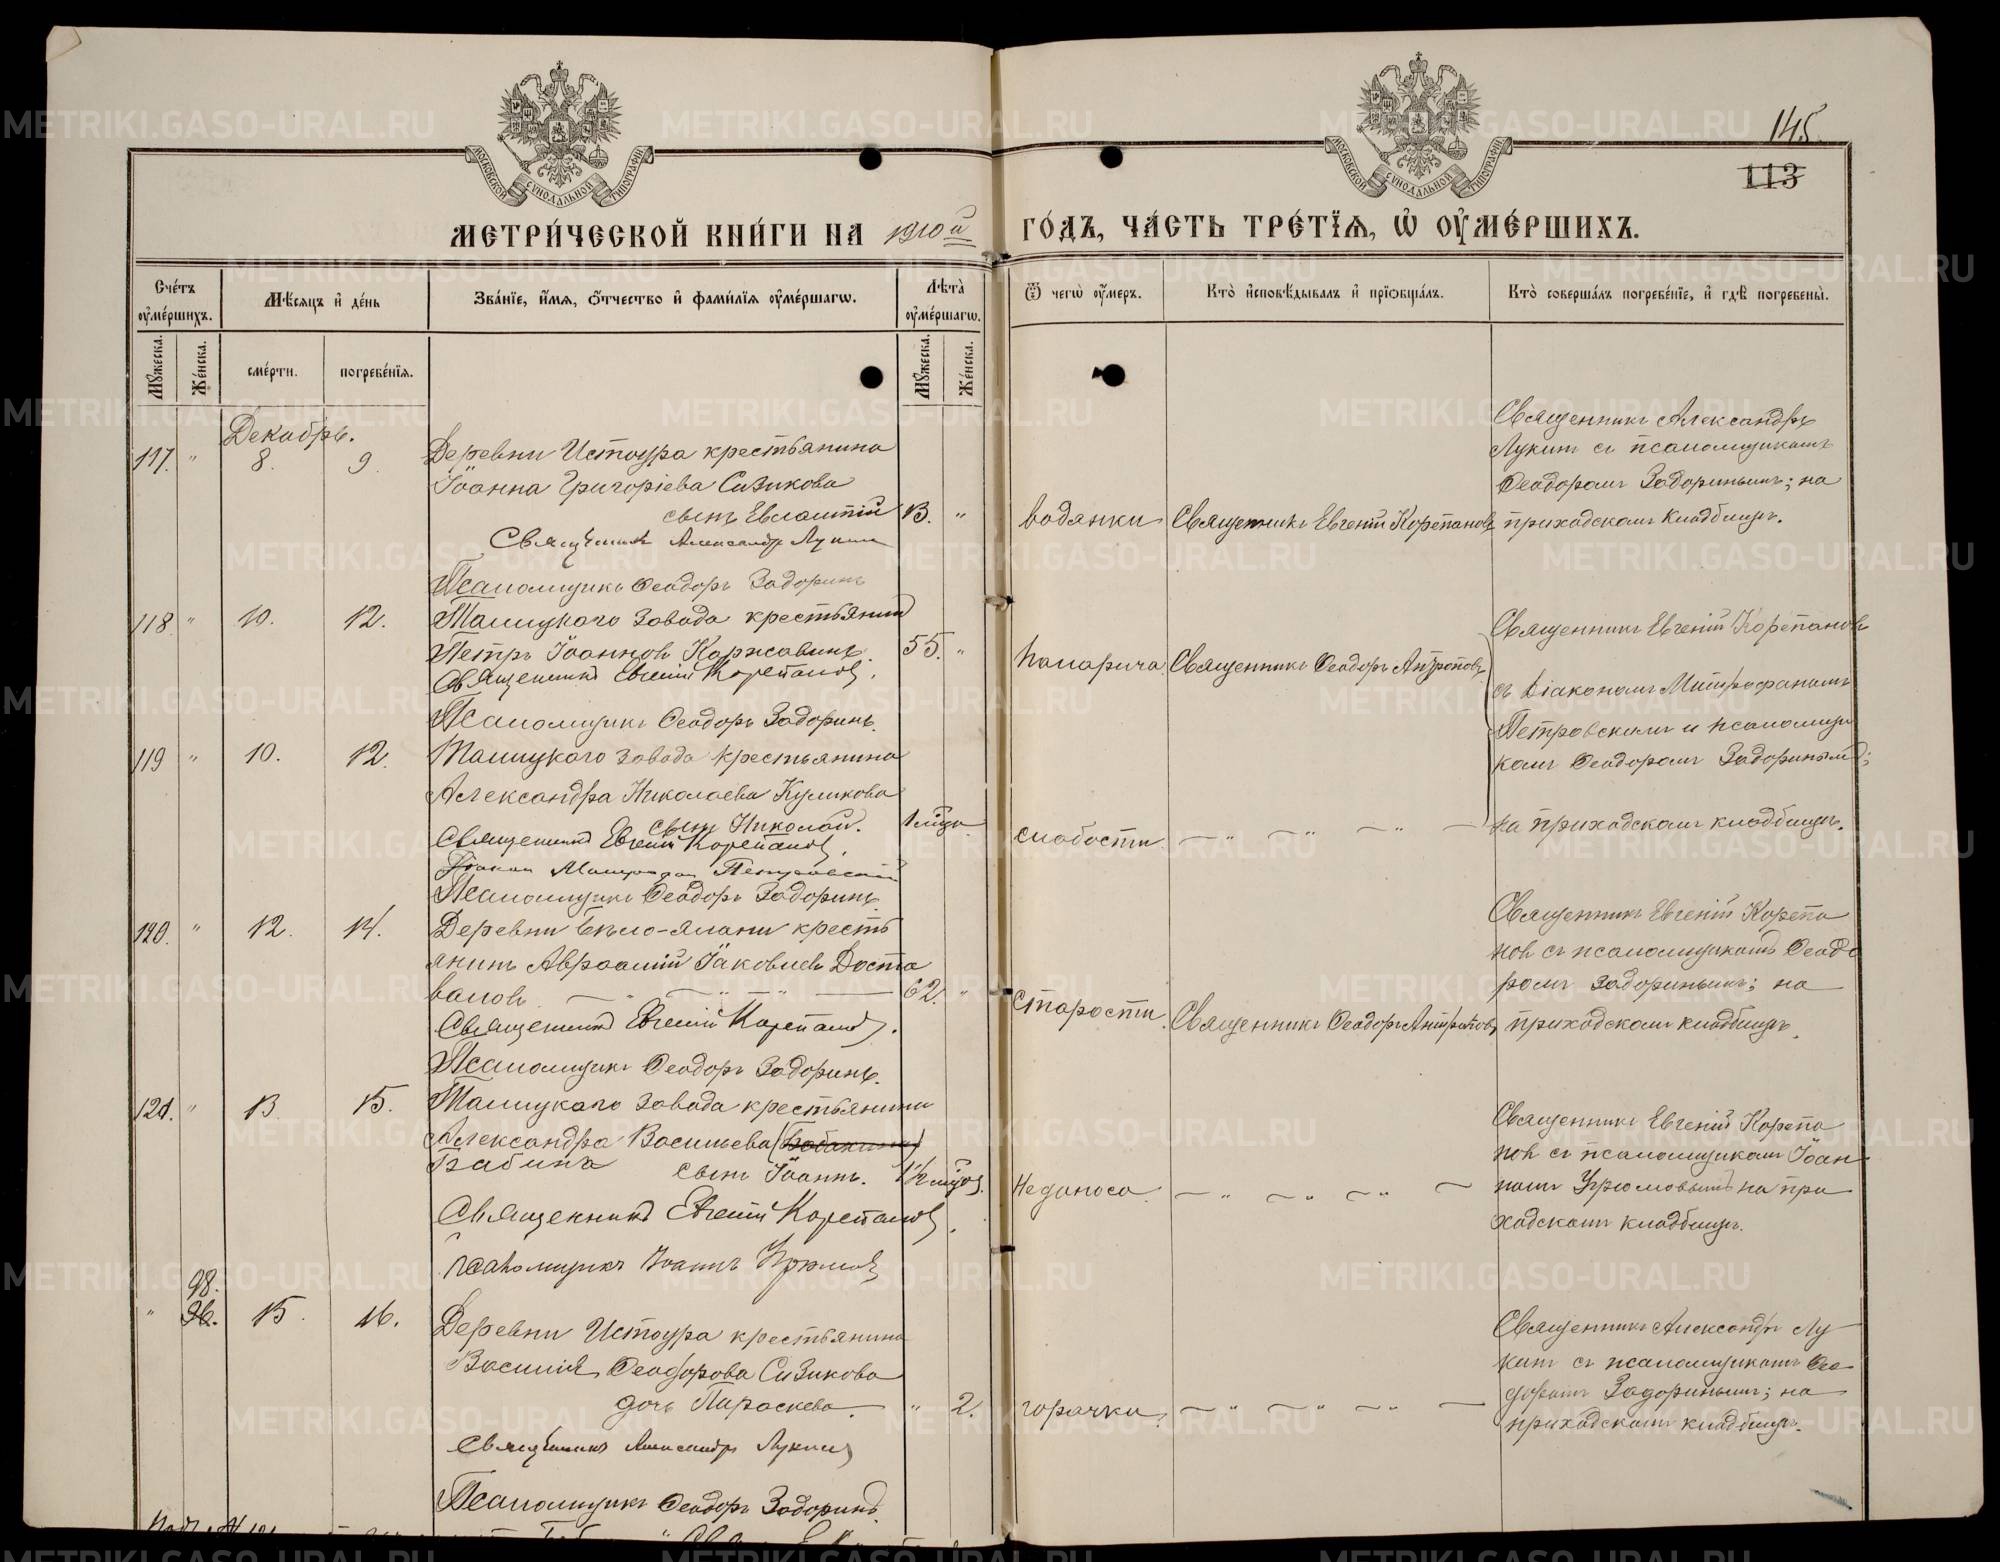 145.
113
МОСКОВСКОЙ СУНОДАЛЬНОЙ ТИПОГРАФІИ
МОСКОВСКОЙ СУНОДАЛЬНОЙ ТИПОГРАФІИ
МЕТРИ́ЧЕСКОЙ КНИ́ГИ НА 1910й ГО́ДЪ, ЧА́СТЬ ТРЕ́ТІѦ, Ѽ ОУ҆МЕ́РШИХЪ.
Сче́тъ оу҆ме́ршихъ.
Мѣ́сяцъ и҆ де́нь
Зва́ніе, и҆́мя, ѻ҆́тчество и҆ фами́лія оу҆ме́ршагѡ.
Лѣ́та оу҆ме́ршагѡ.
Ѿ чегѡ̀ оу҆́меръ.
Кто̀ и҆сповѣ́дывалъ и҆ прїѡбща́лъ.
Кто̀ соверша́лъ погребе́ніе, и҆ гдѣ̀ погребены̀.
Мꙋ́жеска.
Же́нска.
сме́рти.
погребе́нія.
Мꙋ́жеска.
Же́нска.
Декабрь.
117. " 8. 9.
Деревни Истоура крестьянина
Іоанна Григоріева Сизикова
сынъ Евлампій 13. "
Священникъ Александръ Лукинъ
Псаломщикъ Ѳеодоръ Задоринъ
водянки
Священникъ Евгеній Корепановъ
Священникъ Александръ
Лукинъ съ псаломщикомъ
Ѳеодоромъ Задоринымъ; на
приходскомъ кладбищѣ.
118. " 10. 12.
Талицкаго завода крестьянинъ
Петръ Іоанновъ Коржавинъ. 55. "
Священникъ Евгеній Корепановъ.
Псаломщикъ Ѳеодоръ Задоринъ.
Священникъ Ѳеодоръ Антроповъ
Священникъ Евгеній Корепановъ
съ Діакономъ Митрофаномъ
Петровскимъ и псаломщи
комъ Ѳеодоромъ Задоринымъ;
на приходскомъ кладбищѣ.
119 " 10. 12.
Талицкаго завода крестьянина
Александра Николаева Куликова
сынъ Николай. 1 мѣся.
Священникъ Евгеній Корепановъ.
Діаконъ Митрофанъ Петровскій
Псаломщикъ Ѳеодоръ Задоринъ.
слабости. — " — " — " —
120. " 12. 14.
Деревни Бѣло-ялани кресть
янинъ Авраамій Іаковлевъ Доста
валовъ — " — " — " — 62. "
Священникъ Евгеній Корепановъ.
Псаломщикъ Ѳеодоръ Задоринъ.
Старости.
Священникъ Ѳеодоръ Антроповъ
Священникъ Евгеній Корепа
новъ съ псаломщикомъ Ѳеодо
ромъ Задоринымъ; на
приходскомъ кладбищѣ.
121. " 13 15.
Талицкаго завода крестьянина
Александра Васильева
Бабина сынъ Іоаннъ. 1½ мѣся.
Священникъ Евгеній Корепановъ.
Псаломщикъ Іоаннъ Угрюмовъ
Недоноса. — " — " — " —
Священникъ Евгеній Корепа
новъ съ псаломщикомъ Іоан
номъ Угрюмовымъ на при
ходскомъ кладбищѣ.
98.
" 96. 15. 16.
Деревни Истоура крестьянина
Василія Ѳеодорова Сизикова
дочь Параскева. " 2.
Священникъ Александръ Лукинъ
Псаломщикъ Ѳеодоръ Задоринъ.
горячки. — " — " — " —
Священникъ Александръ Лу
кинъ съ псаломщикомъ Ѳео
доромъ Задоринымъ; на
приходскомъ кладбищѣ.
METRIKI.GASO-URAL.RU